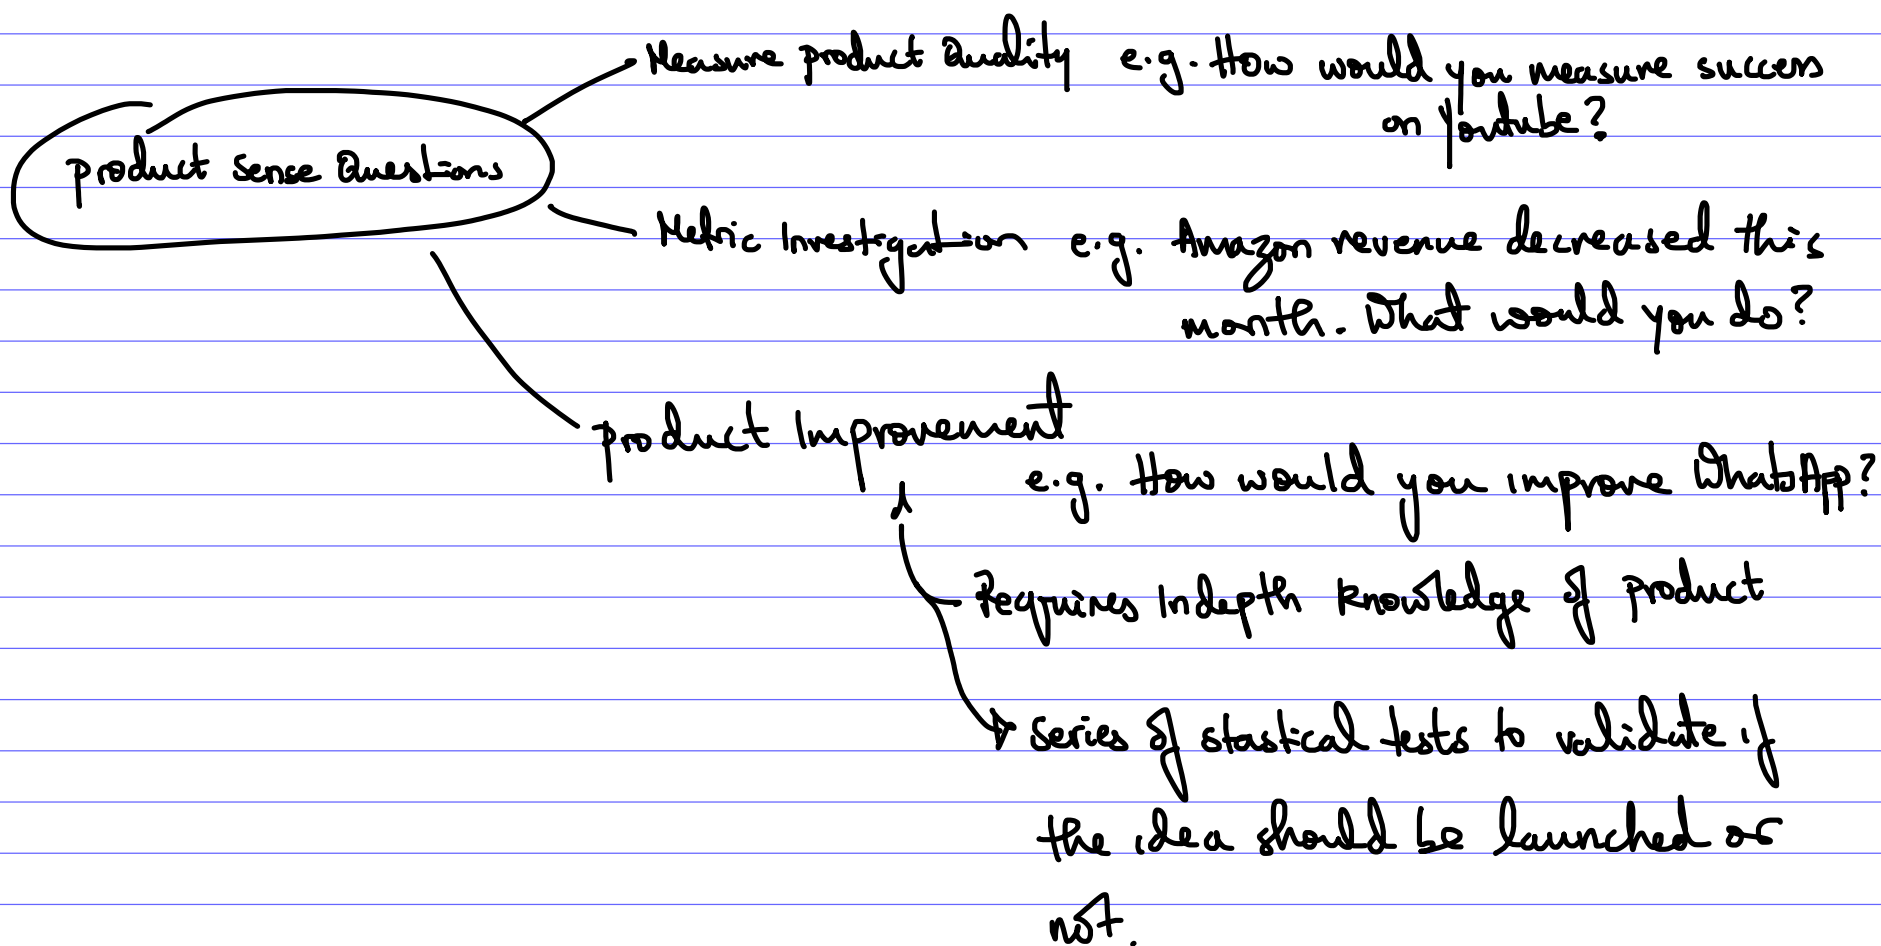 Measure product Quality e.g. How would you measure success
on Youtube?
product sense Questions
Metric Investigation e.g. Amazon revenue decreased this
month. What would you do?
product Improvement
e.g. How would you improve WhatsApp?
Requires Indepth knowledge of product
series of stastical tests to validate if
the idea should be launched or
not.